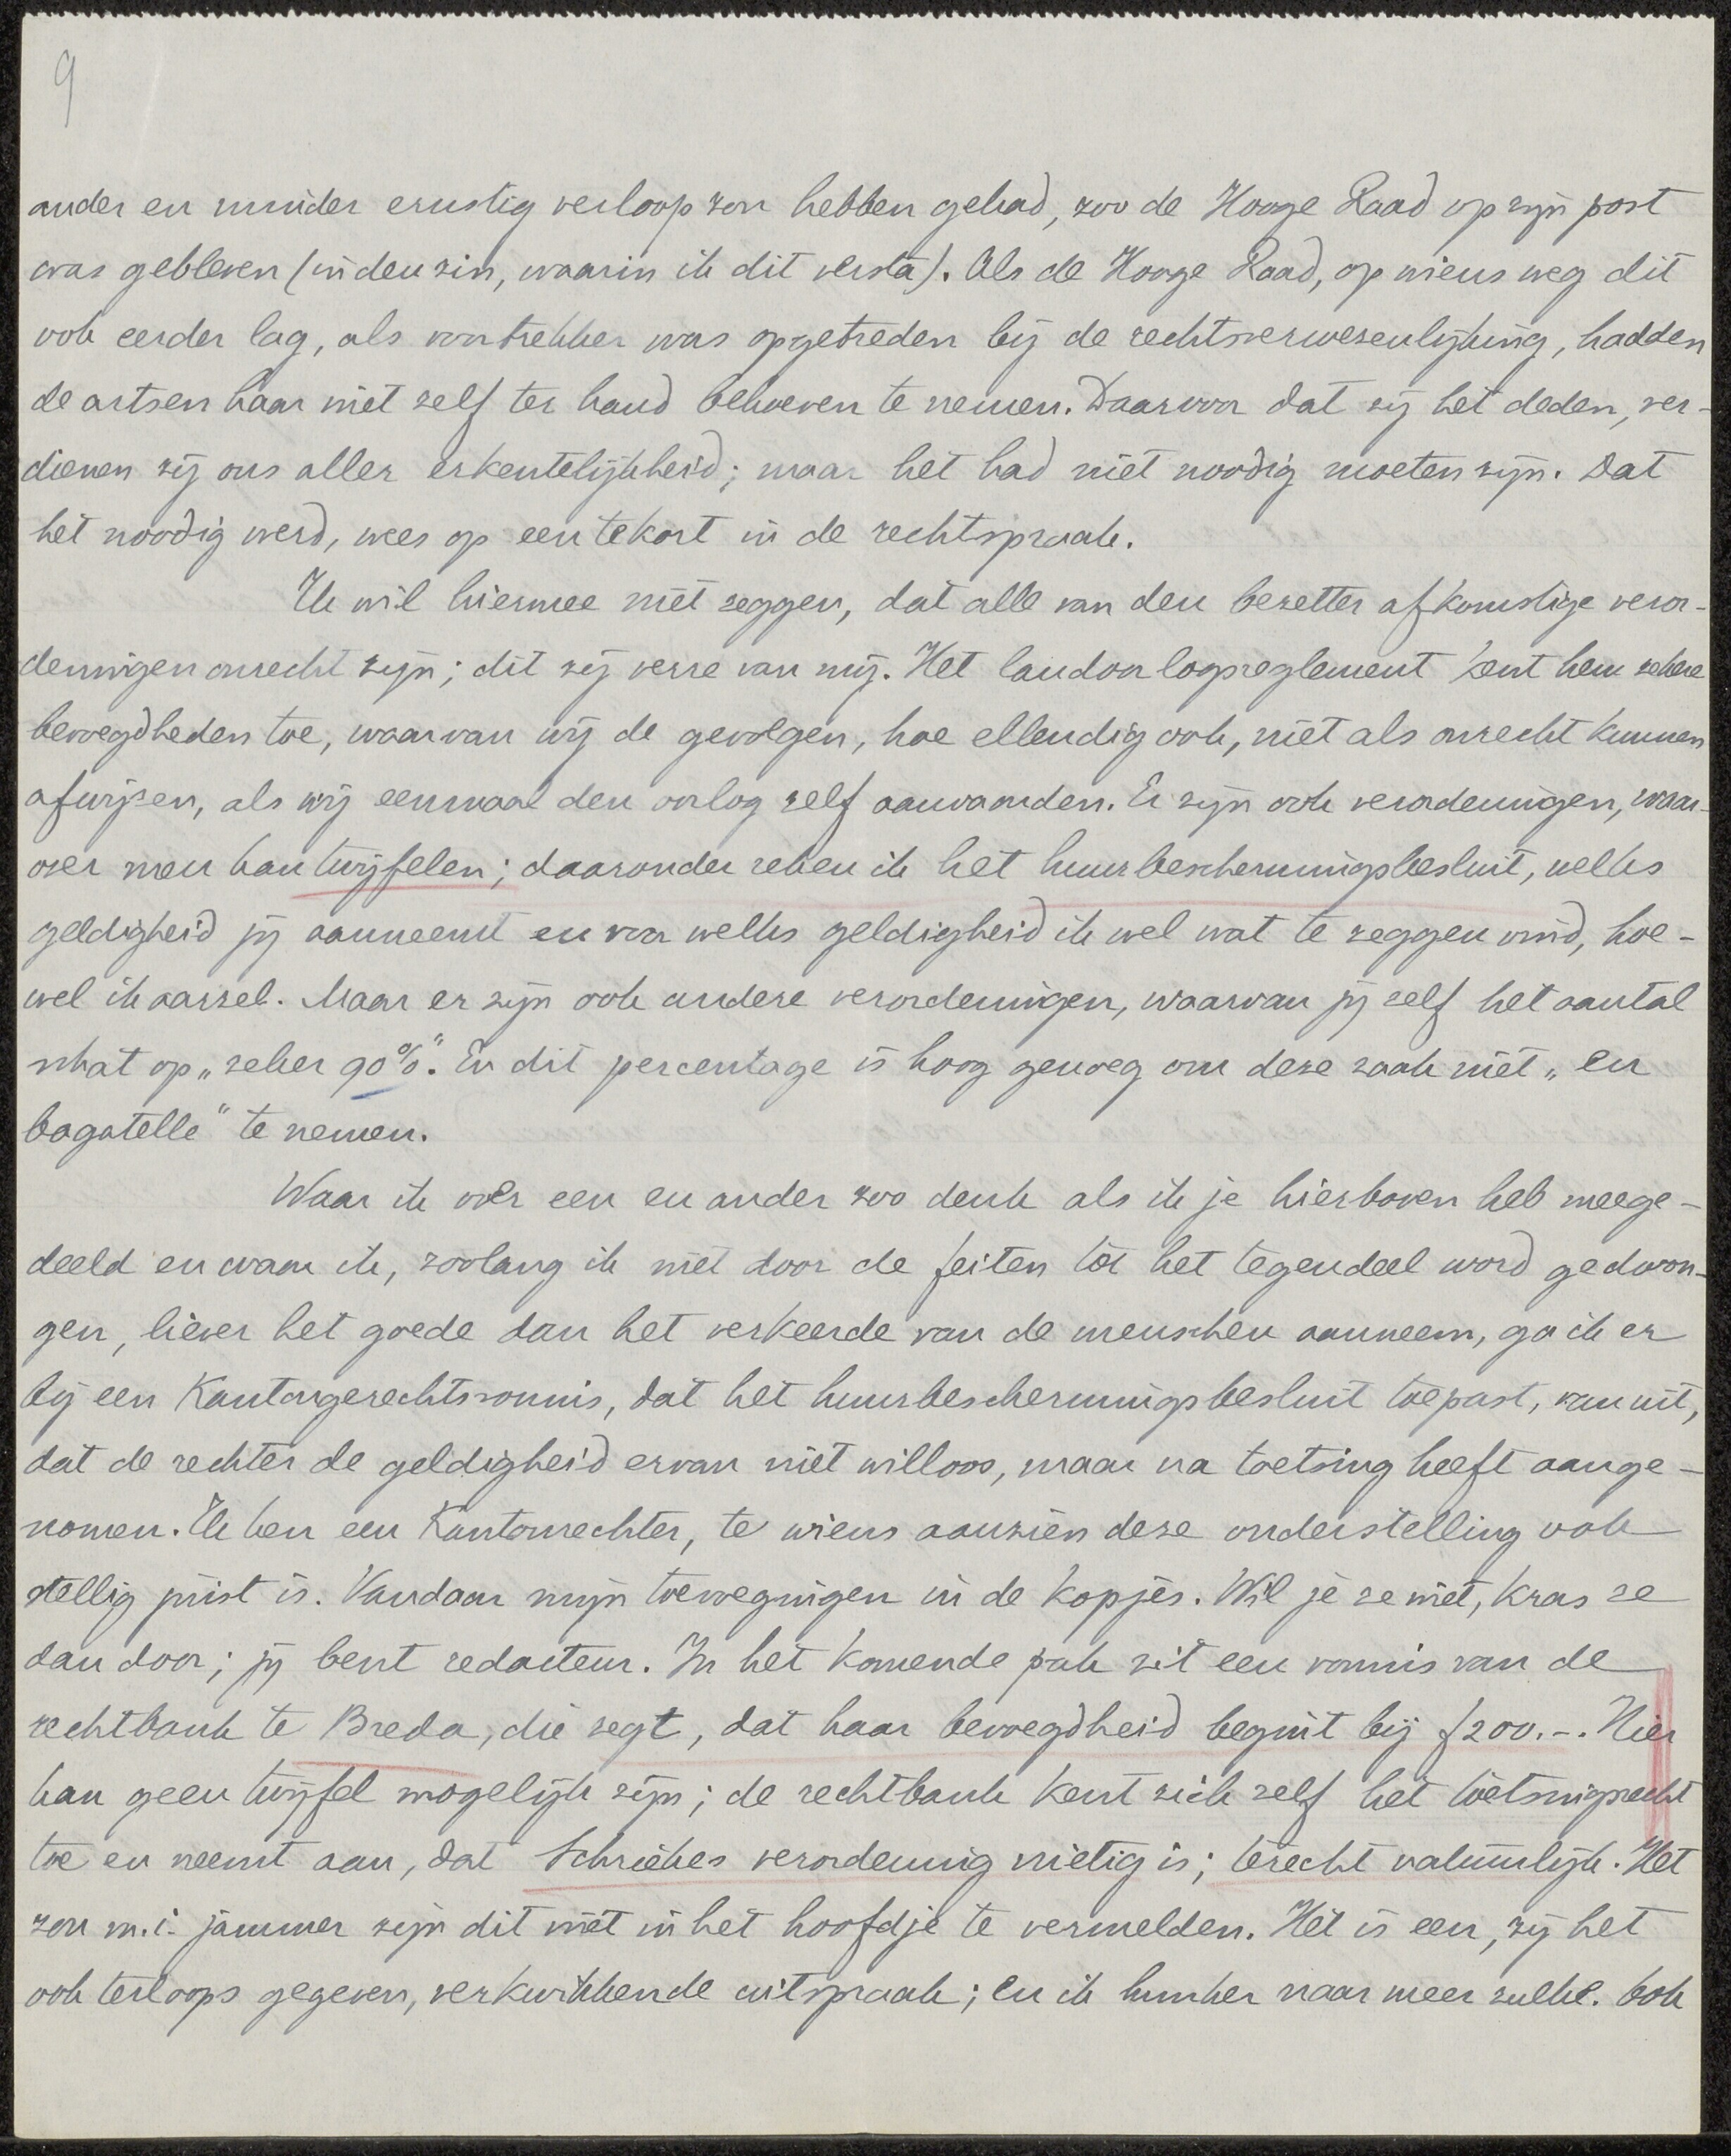 9
ander en minder ernstig verloop zou hebben gehad, zoo de Hooge Raad op zijn post
was gebleven (in den zin, waarin ik dit versta). Als de Hooge Raad, op wiens weg dit
ook eerder lag, als voortrekker was opgetreden bij de rechtsverwezenlijking, hadden
de artsen haar niet zelf ter hand behoeven te nemen. Daarvoor dat zij het deden, ver-
dienen zij ons aller erkentelijkheid; maar het had niet noodig moeten zijn. Dat
het noodig werd, wees op een tekort in de rechtspraak.
Ik wil hiermee niet zeggen, dat alle van den bezetter afkomstige veror-
deningen onrecht zijn; dit zij verre van mij. Het landoorlogreglement kent hem zekere
bevoegdheden toe, waarvan wij de gevolgen, hoe ellendig ook, niet als onrecht kunnen
afwijzen, als wij eenmaal den oorlog zelf aanvaarden. Er zijn ook verordeningen, waar-
over men kan twijfelen; daaronder reken ik het huurbeschermingsbesluit, welks
geldigheid jij aanneemt en voor welks geldigheid ik wel wat te zeggen vind, hoe-
wel ik aarzel. Maar er zijn ook andere verordeningen, waarvan jij zelf het aantal
schat op „zeker 90%". En dit percentage is hoog genoeg om deze zaak niet „en
bagatelle" te nemen.
Waar ik over een en ander zoo denk als ik je hierboven heb meege-
deeld en waar ik, zoolang ik niet door de feiten tot het tegendeel word gedwon-
gen, liever het goede dan het verkeerde van de menschen aanneem, ga ik er
bij een Kantongerechtsvonnis, dat het huurbeschermingsbesluit toepast, van uit,
dat de rechter de geldigheid ervan niet willoos, maar na toetsing heeft aange-
nomen. Ik ken een Kantonrechter, te wiens aanzien deze onderstelling ook
stellig juist is. Vandaar mijn toevoegingen in de kopjes. Wil je ze niet, kras ze
dan door; jij bent redacteur. In het komende pak zit een vonnis van de
rechtbank te Breda, die zegt, dat haar bevoegdheid begint bij f 200.-. Hier
kan geen twijfel mogelijk zijn; de rechtbank kent zich zelf het toetsingsrecht
toe en neemt aan, dat Schriekes verordening nietig is; terecht natuurlijk. Het
zou m.i. jammer zijn dit niet in het hoofdje te vermelden. Het is een, zij het
ook terloops gegeven, verkwikkende uitspraak; en ik hunker naar meer zulke. Ook